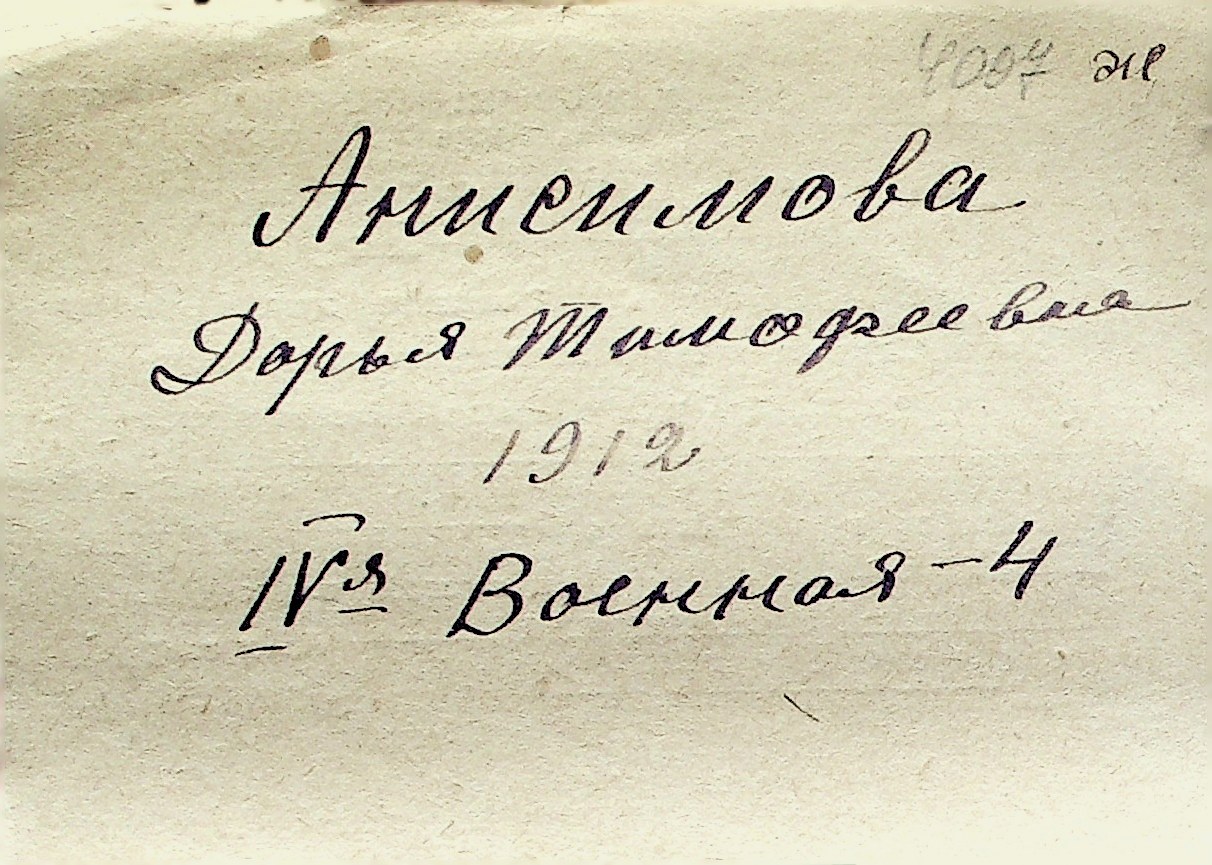 4097 же
Анисимова
Дарья Тимофеевна
1912
IVя Военная-4